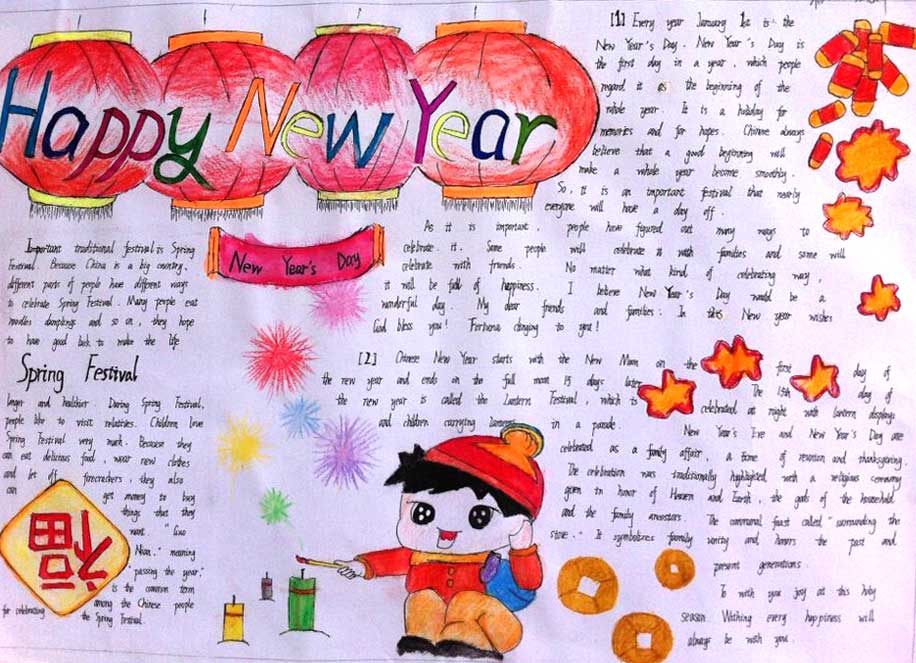 Happy New Year
[1] Every year January 1st is the
New Year's Day. New Year's Day is
the first day in a year, which people
regard it as the beginning of the
whole year. It is a holiday for
memories and for hopes. Chinese always
believe that a good beginning will
make a whole year become smoothly.
So, it is an important festival that nearly
everyone will have a day off.
New Year's Day
As it is important, people have figured out many ways to
celebrate it. Some people will celebrate it with families and some will
celebrate with friends. No matter what kind of celebrating way,
it will be full of happiness. I believe New Year's Day would be a
wonderful day. My dear friends and families. In this New year wishes
God bless you! Fortune clinging to you!
Important traditional festival is Spring
Festival. Because China is a big country,
different parts of people have different ways
to celebrate Spring Festival. Many people eat
noodles dumplings and so on, they hope
to have good luck to make the life
Spring Festival
longer and healthier. During Spring Festival,
people like to visit relatives. Children love
Spring Festival very much. Because they
can eat delicious food wear new clothes
and let off firecrackers, they also
can get money to buy
things that they
want. "Guo
Nian." meaning
"passing the year,"
is the common term
among the Chinese people
for celebrating the Spring Festival.
福
[2] Chinese New Year starts with the New Moon on the first day of
the new year and ends on the full moon 15 days later. The 15th day of
the new year is called the Lantern Festival, which is celebrated at night with lantern displays
and children carrying lanterns in a parade. New Year's Eve and New Year's Day are
celebrated as a family affair, a time of reunion and thanksgiving.
The celebration was traditionally highlighted with a religious ceremony
given in honor of Heaven and Earth, the gods of the household
and the family ancestors. The communal feast called "surrounding the
stove." It symbolizes family unity and honors the past and
present generations.
To wish you joy at this holy
season. Wishing every happiness will
always be with you.